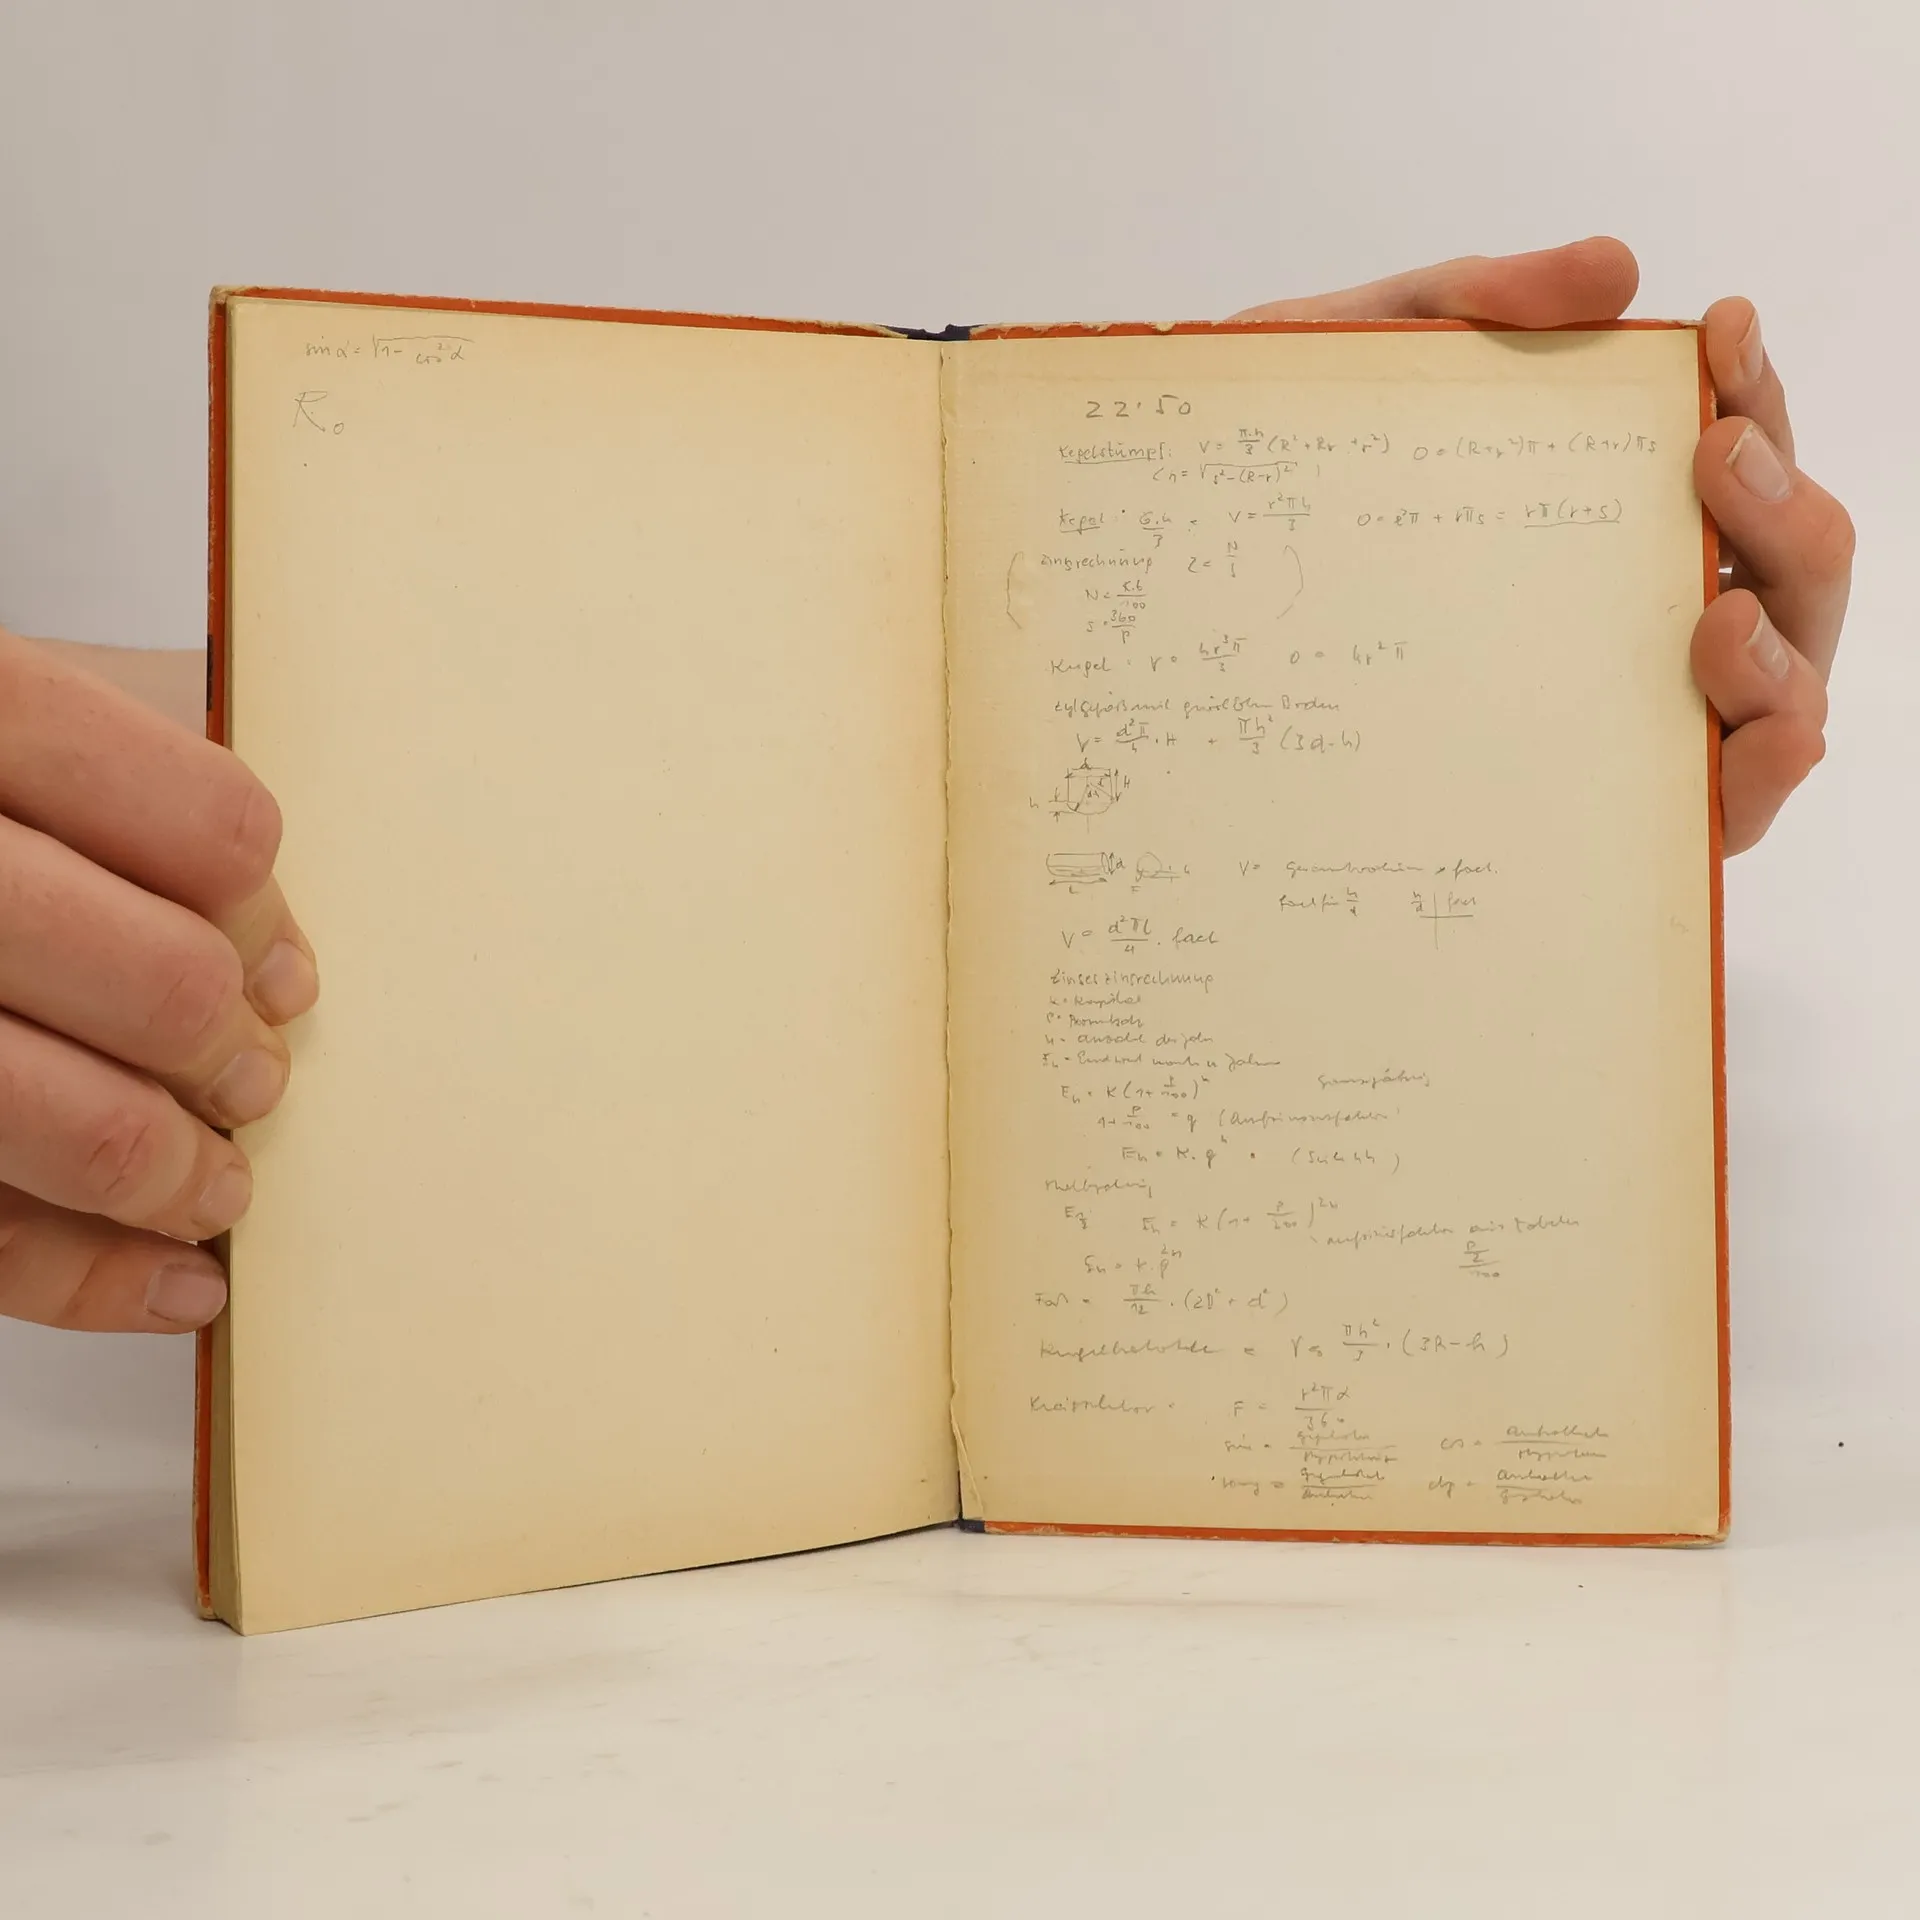 sin α = √1 - cos²α
R.o
22'50
Kegelstumpf: V = π.h/3 (R² + Rr + r²) O = (R+r²)π + (R+r)πs
(h = √s²-(R-r)²)
Kegel: G.h/3 = V = r²πh/3 O = r²π + rπs = rπ(r+s)
Zinsrechnung Z = N/s
N = K.t/100
s = 360/p
Kugel = V = 4r³π/3 O = 4r²π
Boden
V = d²π/4 . H + πh²/3 (3d-h)
d
H
h
d L h V = Gesamtvolumen × fact.
fact für h/d h/d | fact
V = d²πl/4 . fact
Zinseszinsrechnung
K = Kapital
n = Anzahl der Jahre
En = Endwert nach n Jahren
En = K(1+p/100)^n ganzjährig
1+p/100 = q (Aufzinsungsfaktor)
En = K.q^n
Halbjährig
En = K(1+p/200)^2n
Aufzinsfaktor aus Tabelle
p/2/100
Faß = πh/12 . (2D² + d²)
V = πh²/3 . (3R-h)
Kreissektor = F = r²πα/360
sin = Gegenkath/Hypothenuse cos = Ankathete/Hypothen
tang = Gegenkathete/Ankathete ctg = Ankathete/Gegkathete